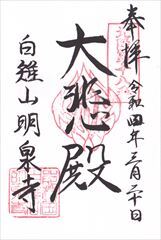 奉拝 令和四年三月二十日
大悲殿
白雉山明泉寺